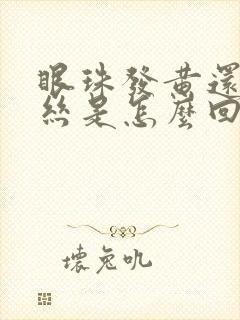 眼珠發黃還
絲是怎麼回
壞兔吼